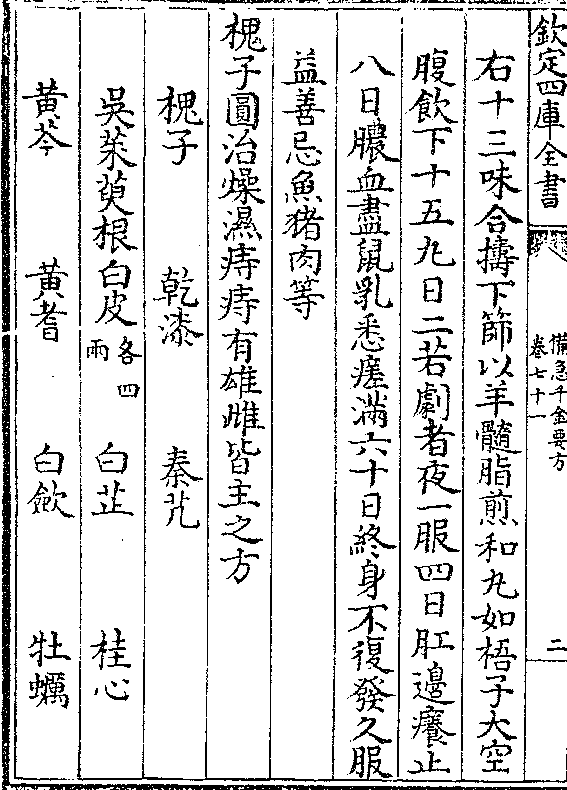 欽定四庫全書
備急千金要方
卷七十一
二
右十三味合擣下篩以羊髓脂煎和丸如梧子大空
腹飲下十五丸日二若劇者夜一服四日肛邊癢止
八日膿血盡鼠乳悉瘥滿六十日終身不復發久服
益善忌魚猪肉等
槐子圓治燥濕痔痔有雄雌皆主之方
槐子 乾漆 秦艽
吳茱萸根白皮各四兩 白芷 桂心
黄芩 黄耆 白歛 牡蠣